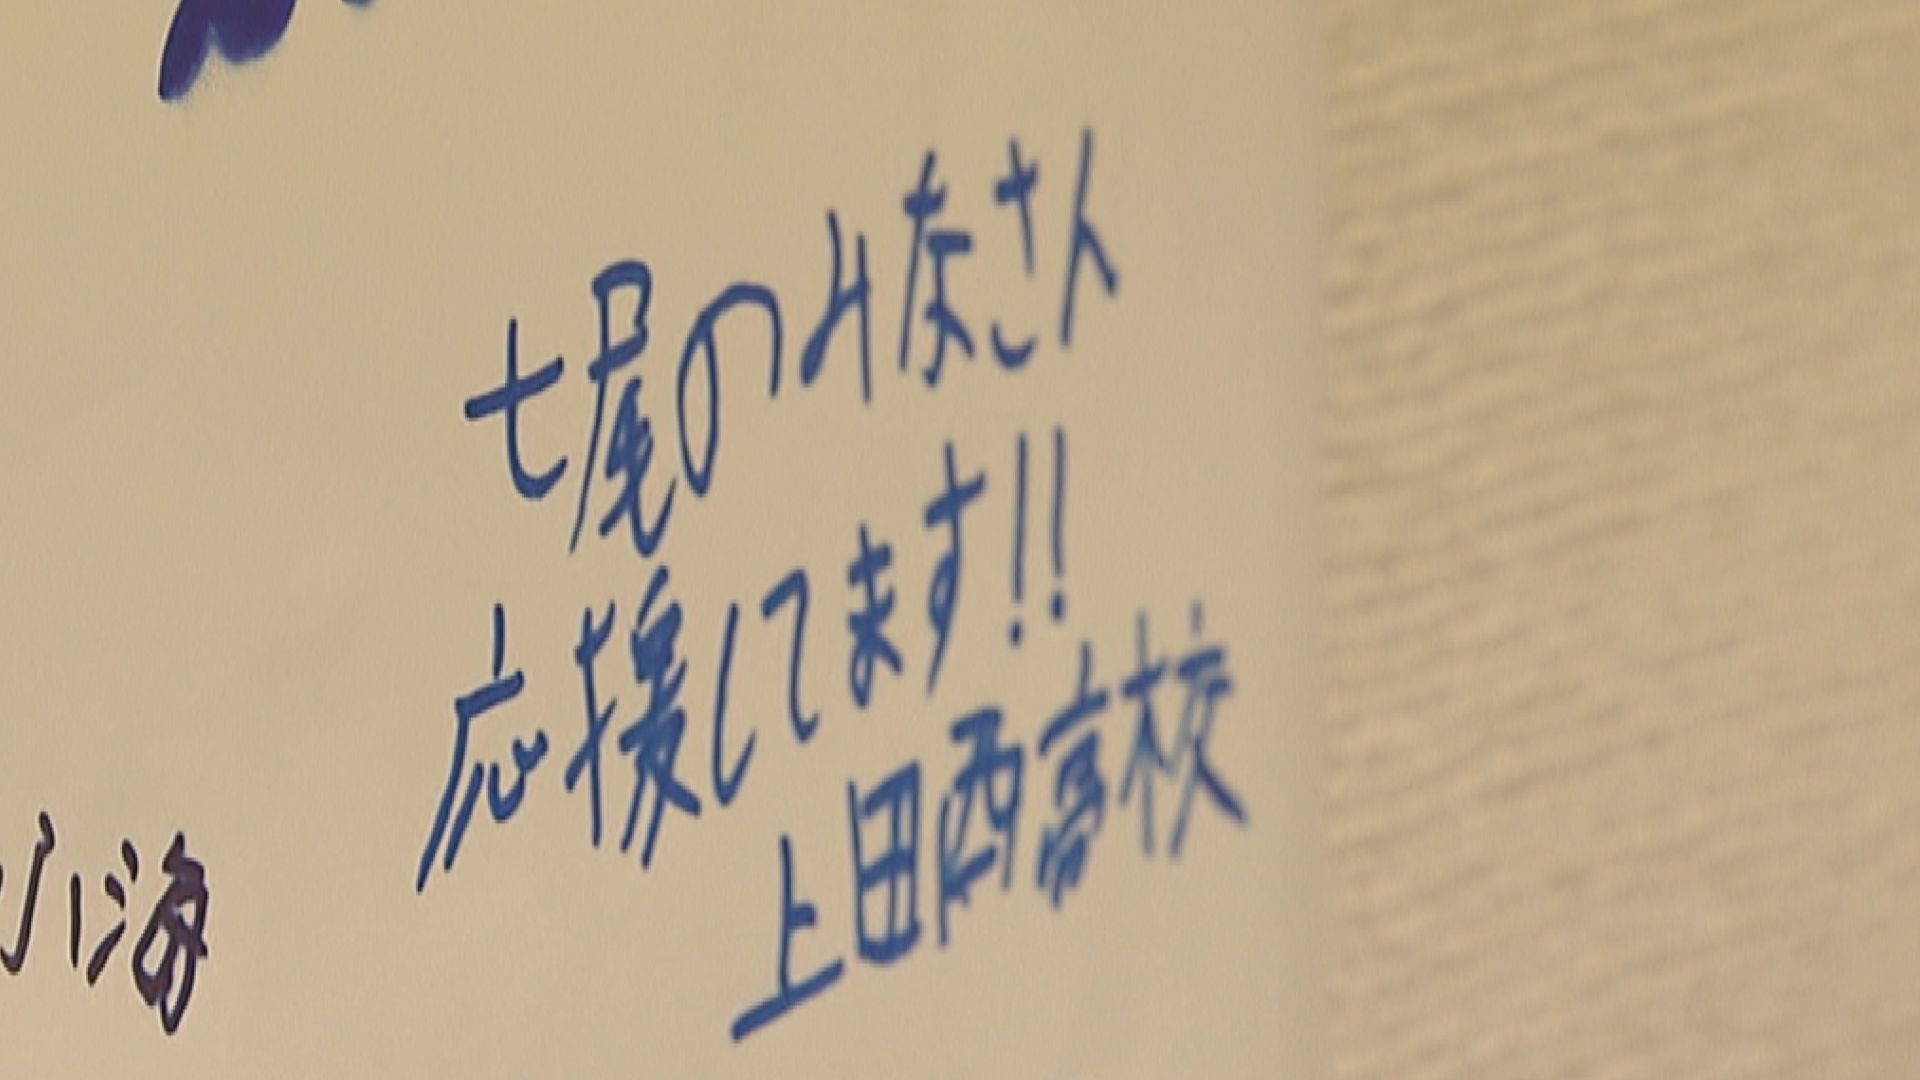 七尾のみなさん
応援してます!!
上田西高校
海